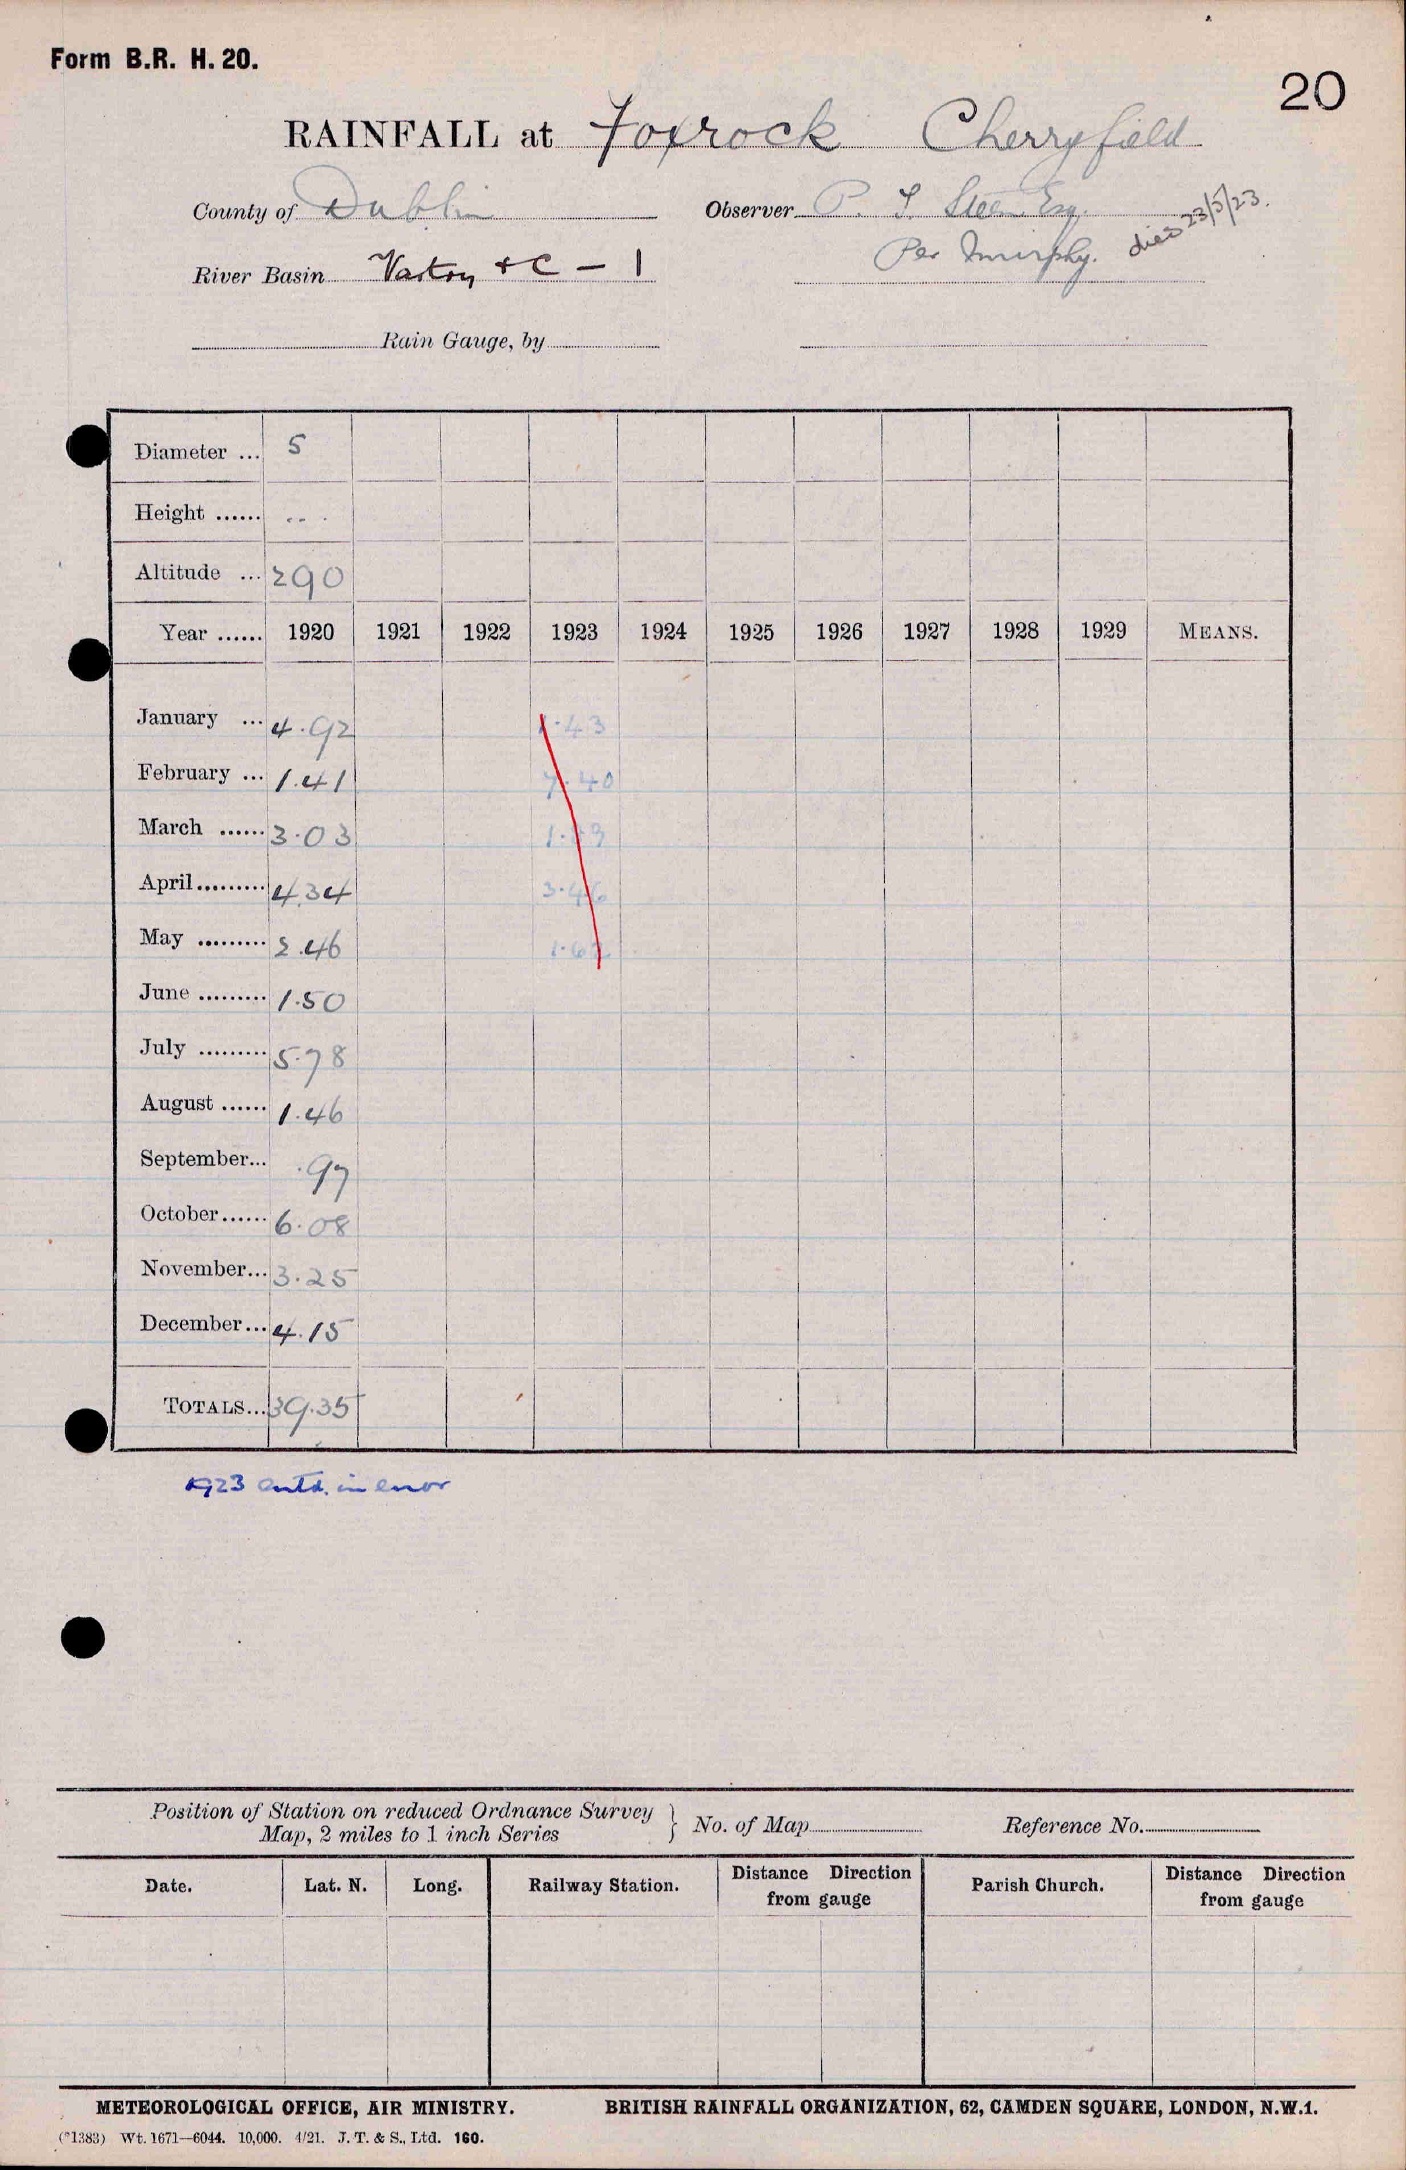 Form B.R. H. 20.
20
RAINFALL at Foxrock Cherryfield
County of Dublin Observer P. T. Steen Esq. died 23/5/23.
Per Murphy.
River Basin Vartry + C – 1
Rain Gauge, by
Diameter ... 5
Height ...... .. .
Altitude ... 290
Year ...... 1920 1921 1922 1923 1924 1925 1926 1927 1928 1929 MEANS.
January ... 4.92 1.43
February ... 1.41 7.40
March ...... 3.03
April ......... 4.34 3.46
May ......... 2.46 1.62
June ......... 1.50
July ......... 5.78
August ...... 1.46
September... .97
October...... 6.08
November... 3.25
December... 4.15
TOTALS... 39.35
1923 entd. in error
Position of Station on reduced Ordnance Survey
Map, 2 miles to 1 inch Series } No. of Map Reference No.
Date. Lat. N. Long. Railway Station. Distance Direction from gauge Parish Church. Distance Direction from gauge
METEOROLOGICAL OFFICE, AIR MINISTRY. BRITISH RAINFALL ORGANIZATION, 62, CAMDEN SQUARE, LONDON, N.W.1.
(*1383) Wt. 1671—6044. 10,000. 4/21. J. T. & S., Ltd. 160.